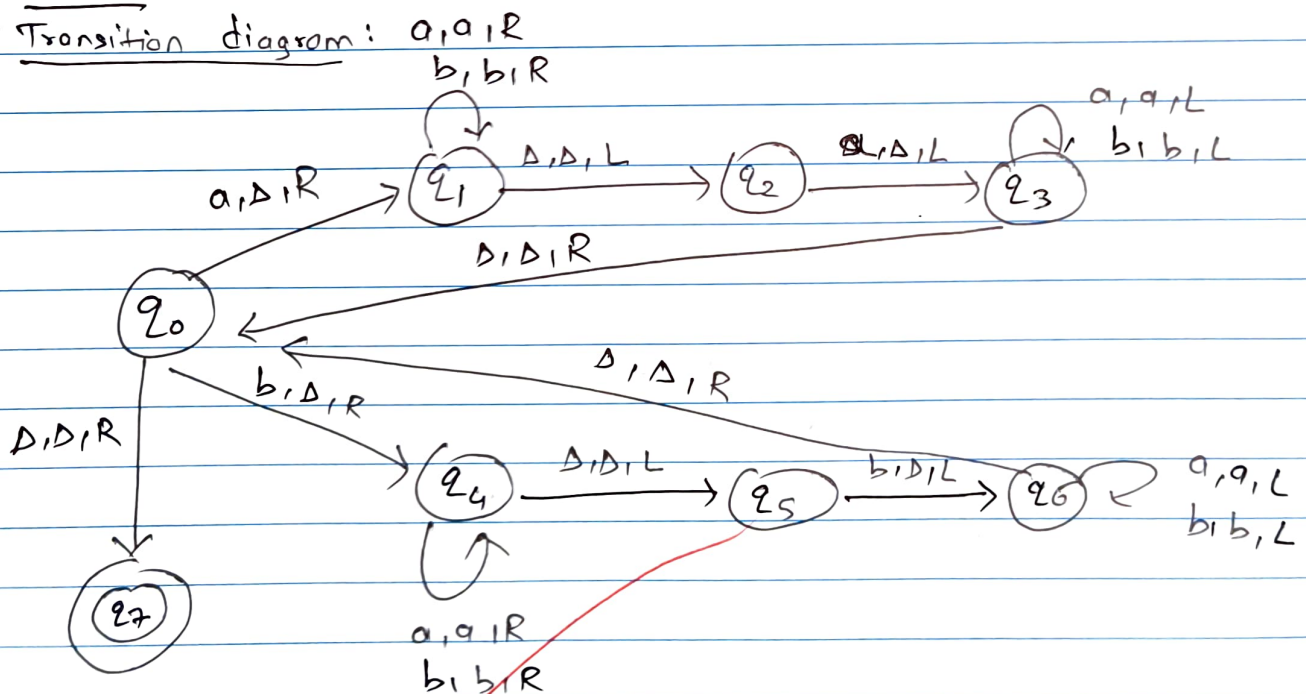 Transition diagram:
a, a, R
b, b, R
a, a, L
b, b, L
a, Δ, R
q1
Δ, Δ, L
q2
a, Δ, L
q3
Δ, Δ, R
q0
Δ, Δ, R
b, Δ, R
Δ, Δ, R
q4
Δ, Δ, L
q5
b, Δ, L
q6
a, a, L
b, b, L
q7
a, a, R
b, b, R